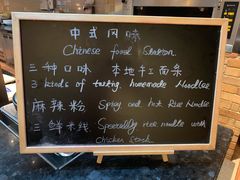 中式风味
Chinese food Station
三种口味 本地手工面条
3 kinds of tasting homemade Noodles
麻辣粉 Spicy and hot Rice Noodle
三鲜米线 Specially rice noodle with
chicken Stock